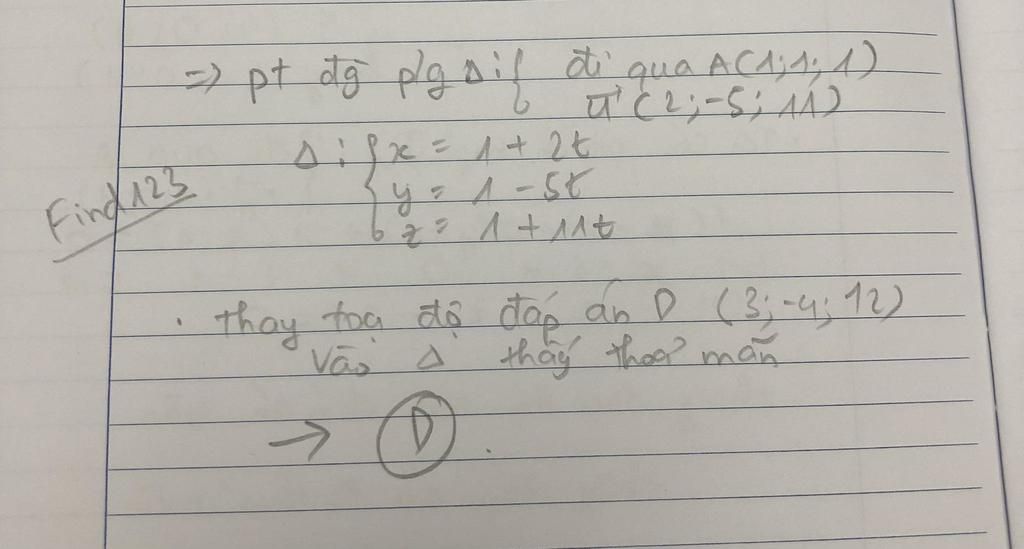 => pt đg p/g Δ: { đi qua A(1;1;1)
u⃗ (2;-5;11)
Δ: { x = 1 + 2t
y = 1 - 5t
z = 1 + 11t
Find123
. thay toạ độ đáp án D (3;-4;12)
vào Δ thấy thoả mãn
→ D .